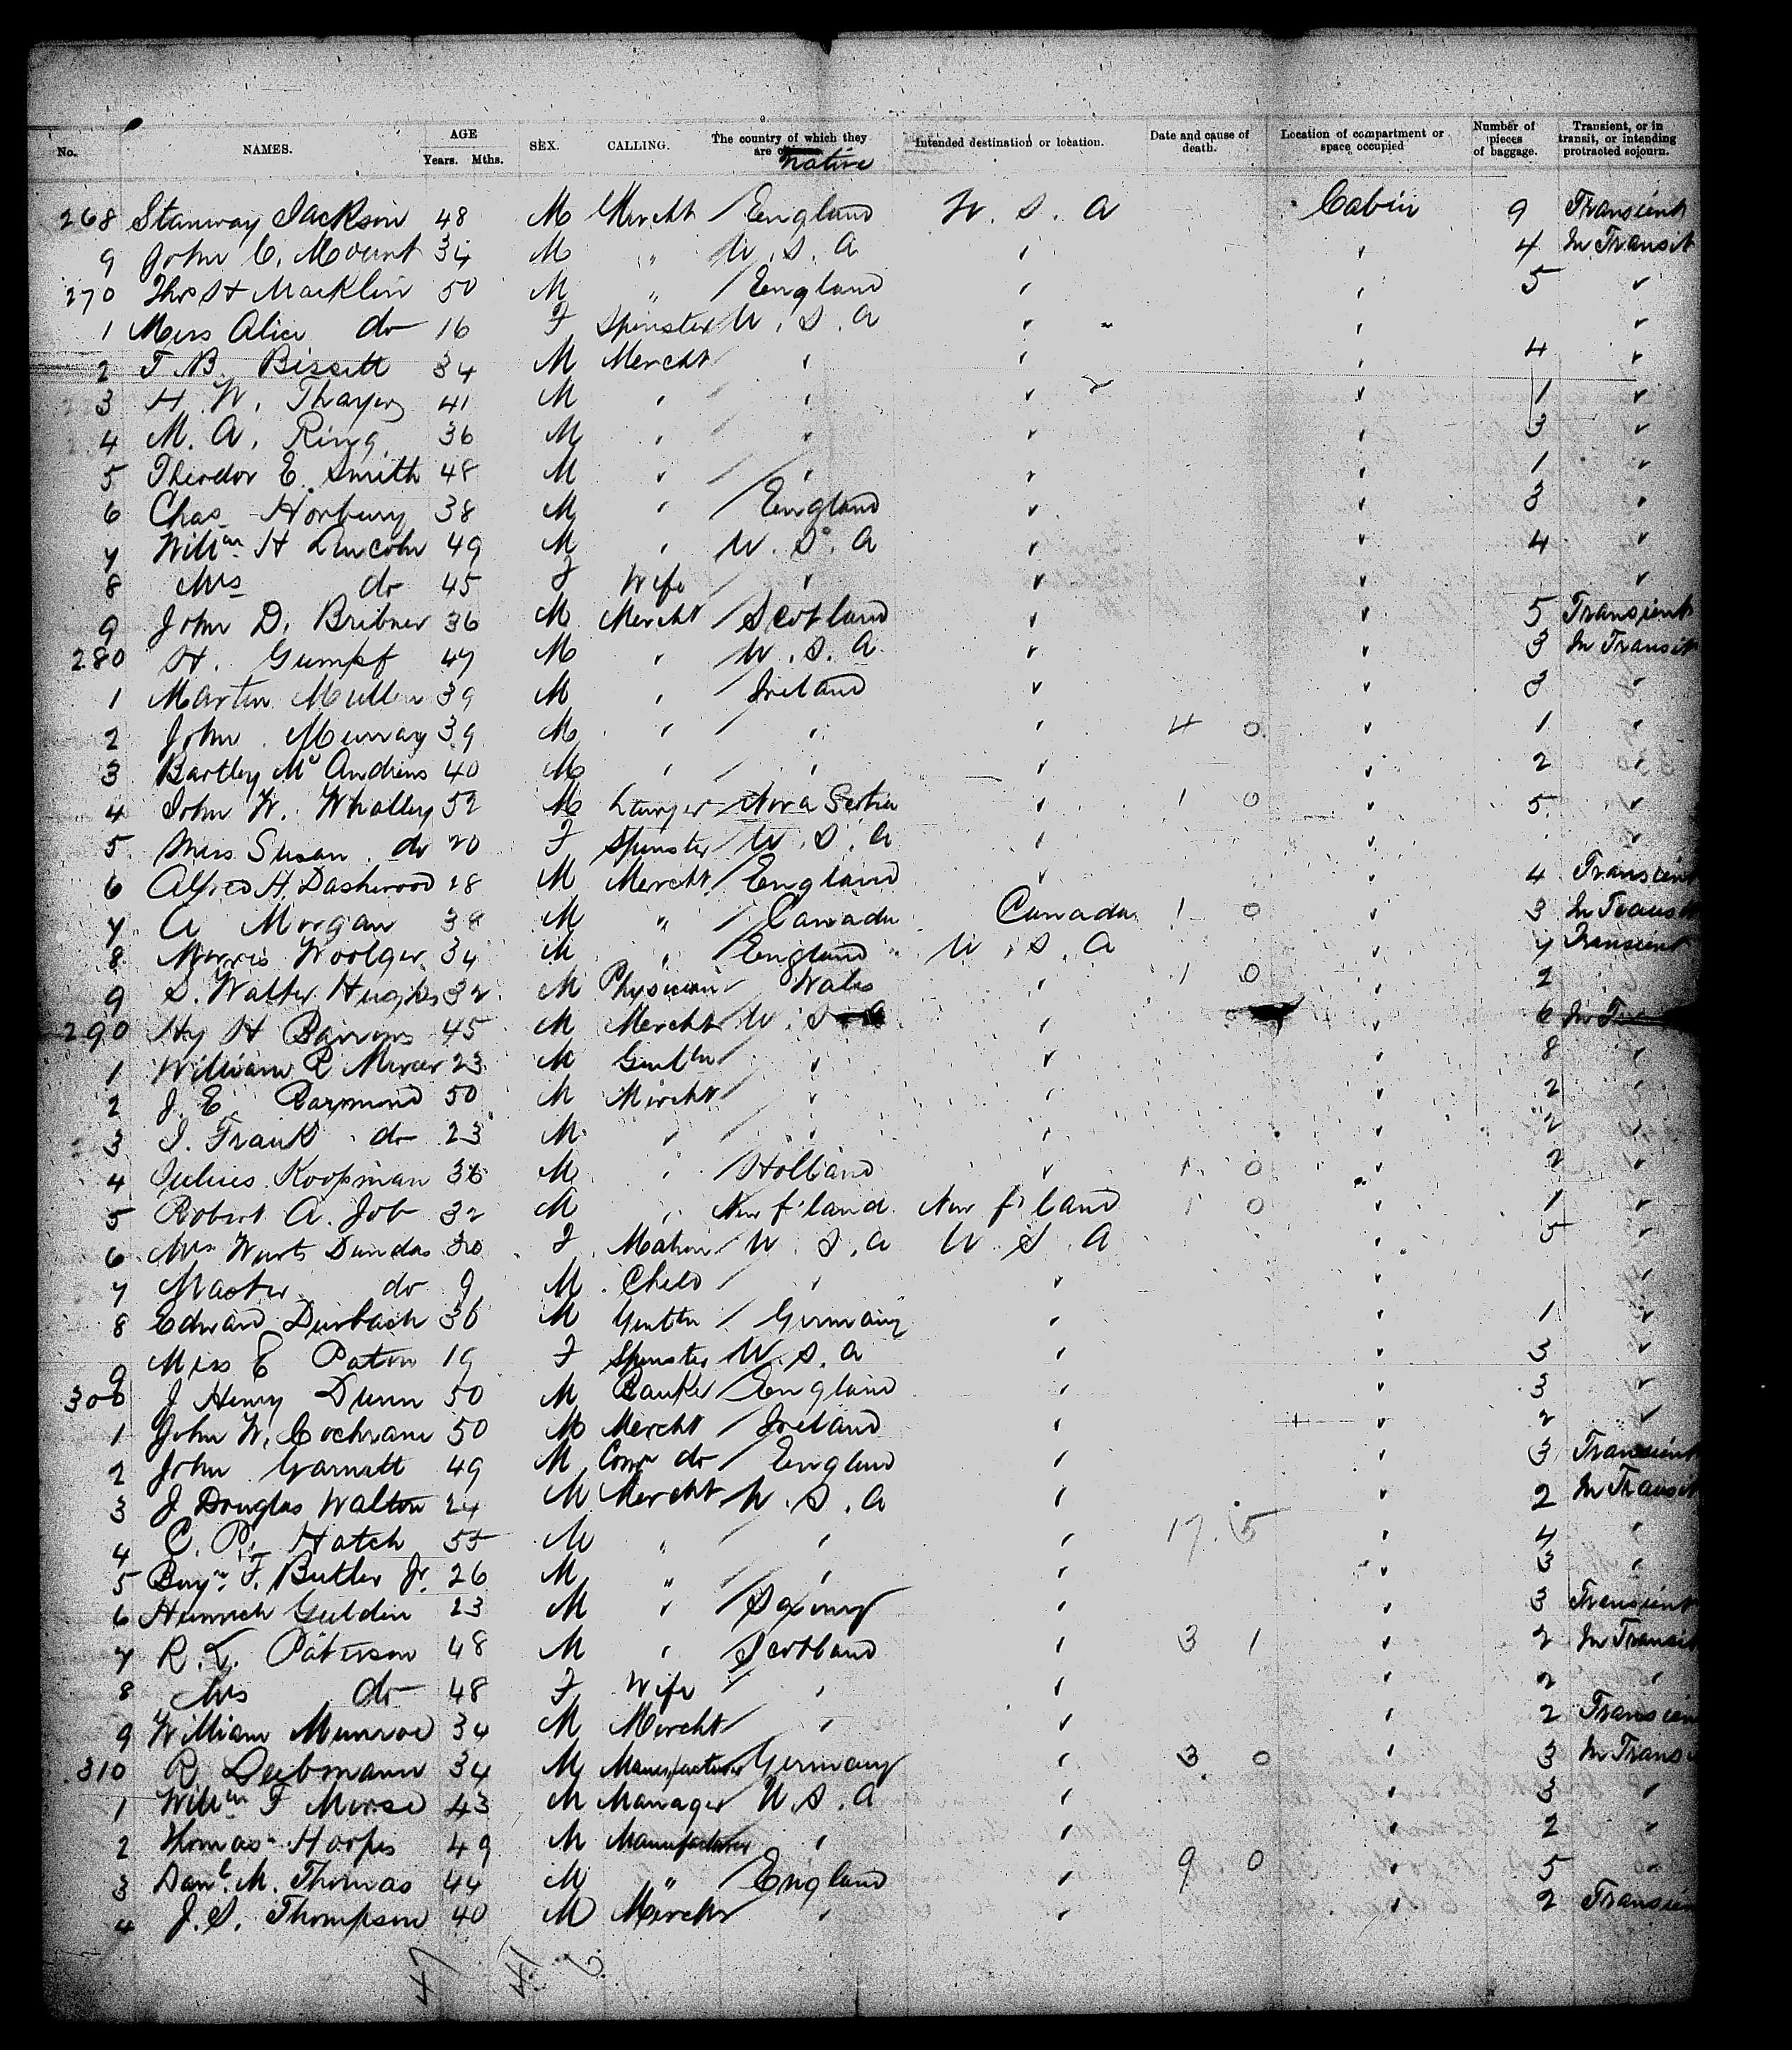 No. NAMES. AGE Years. Mths. SEX. CALLING. The country of which they are native Intended destination or location. Date and cause of death. Location of compartment or space occupied Number of pieces of baggage. Transient, or in transit, or intending protracted sojourn.
268 Stanway Jackson 48 M Mercht / England U. S. A Cabin 9 Transient
9 John C. Mount 34 M " U. S. A ✓ ✓ 4 In Transit
270 Thos H Macklin 50 M " / England ✓ ✓ 5 ✓
1 Miss Alice do 16 F Spinster U. S. A ✓ ✓ ✓
2 T. B. Bissett 34 M Mercht / ✓ ✓ ✓ 4 ✓
3 H. W. Thayer 41 M ✓ ✓ ✓ ✓ 1 ✓
4 M. A. Ring 36 M ✓ ✓ ✓ ✓ 3 ✓
5 Theodor E. Smith 48 M ✓ / ✓ ✓ ✓ 1 ✓
6 Chas Horbury 38 M ✓ / England ✓ ✓ 3 ✓
7 Willm H Lincoln 49 M ✓ U. S. A ✓ ✓ 4 ✓
8 Mrs do 45 F Wife / ✓ ✓ ✓ ✓
9 John D. Bribner 36 M Mercht / Scotland ✓ ✓ 5 Transient
280 H. Gumpf 47 M ✓ U. S. A ✓ ✓ 3 In Transit
1 Martin Mullen 39 M ✓ Ireland ✓ ✓ 3 ✓
2 John Murray 39 M ✓ / ✓ ✓ 4 0 ✓ 1 ✓
3 Bartley Mc Andrews 40 M ✓ / ✓ ✓ ✓ 2 ✓
4 John W. Whalley 52 M Lawyer Nova Scotia ✓ 1 0 ✓ 5 ✓
5 Miss Susan do 20 F Spinster U. S. A ✓ ✓ ✓
6 Alfred H. Dashwood 28 M Mercht / England ✓ ✓ 4 Transient
7 A Morgan 38 M " / Canada Canada 1 0 ✓ 3 In Transit
8 Morris Woolger 34 M " / England U. S. A ✓ 7 Transient
9 S. Walter Hughes 32 M Physician / Wales ✓ 1 0 ✓ 2
290 Hy H Barrows 45 M Mercht U. S. A ✓ ✓ 6 In
1 William R Mercer 23 M Gentln / ✓ ✓ ✓ 8 ✓
2 J. E. Raymond 50 M Mercht / ✓ ✓ ✓ 2 ✓
3 I. Frank do 23 M ✓ / ✓ ✓ ✓ 2 ✓
4 Julius Koopman 36 M ✓ / Holland ✓ 1 0 ✓ 2 ✓
5 Robert A. Job 32 M ✓ New f'land New f'land 1 0 ✓ 1 ✓
6 Mrs Wurts Dundas 30 F Matron / U. S. A U. S. A ✓ 5 ✓
7 Master do 9 M Child / ✓ ✓ ✓ ✓
8 Edward Durbach 36 M Gentln / Germany ✓ ✓ 1 ✓
9 Miss E Paton 19 F Spinster U. S. A ✓ ✓ 3 ✓
300 J Henry Dunn 50 M Banker / England ✓ ✓ 3 ✓
1 John W. Cochrane 50 M Mercht / Ireland ✓ ✓ 2 ✓
2 John Garnett 49 M Comn do / England ✓ ✓ 3 Transient
3 J Douglas Walton 24 M Mercht U. S. A ✓ ✓ 2 In Transit
4 C. P. Hatch 55 M " / ✓ ✓ 17. 5 ✓ 4 ✓
5 Benjn F. Butler Jr. 26 M " ✓ ✓ ✓ 3 ✓
6 Heinrich Guldin 23 M ✓ / Saxony ✓ ✓ 3 Transient
7 R. L. Paterson 48 M ✓ / Scotland ✓ 3 1 ✓ 2 In Transit
8 Mrs do 48 F Wife / ✓ ✓ ✓ 2 ✓
9 William Munroe 34 M Mercht / ✓ ✓ ✓ 2 Transient
310 R Liebmann 34 M Manufacturer Germany ✓ 3 0 ✓ 3 In Transit
1 Willm F Morse 43 M Manager U. S. A ✓ ✓ 3 ✓
2 Thomas Hoopes 49 M Manufacturer ✓ ✓ ✓ 2 ✓
3 Danl. M. Thomas 44 M " / England ✓ 9 0 ✓ 5 ✓
4 J. S. Thompson 40 M Mercht ✓ ✓ ✓ 2 Transient
47 41 6